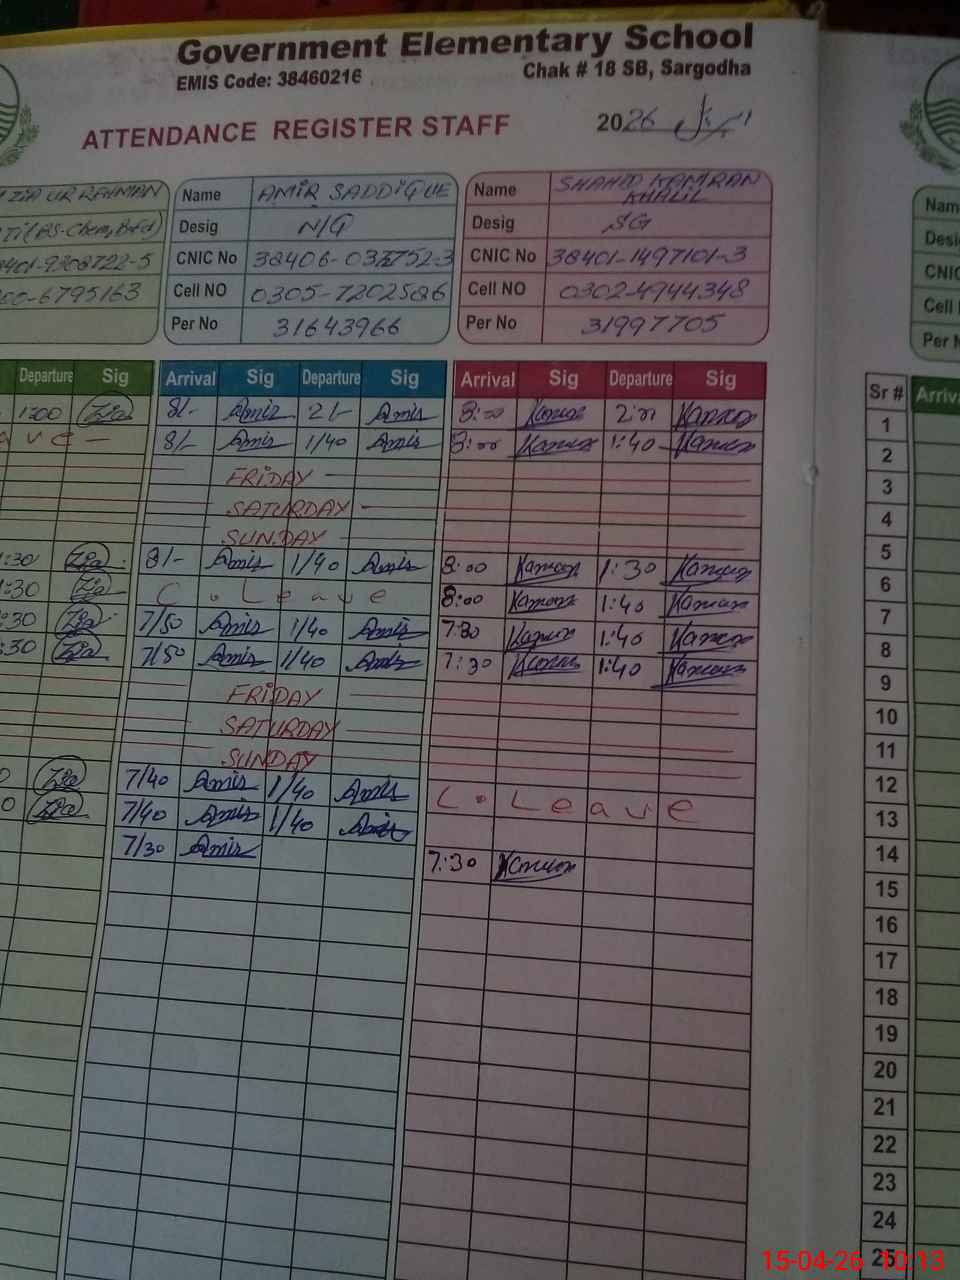 Government Elementary School
EMIS Code: 38460216
Chak # 18 SB, Sargodha
ATTENDANCE REGISTER STAFF
2026
ZIA UR REHMAN
Name AMIR SADDIQUE
Name SHAHID KAMRAN KHALIL
Desig N/Q
Desig SG
CNIC No
CNIC No 38401-1497101-3
-6795163
Cell NO 0305-7202586
Cell NO 0302-4944348
Per No 31643966
Per No 31997705
Name
Desig
CNIC
Cell
Per
Departure Sig
Arrival Sig Departure Sig
Arrival Sig Departure Sig
Sr #
1:00 Zia 8/- Amir 2/- Amir 8:00 Kamran 2:00 Kamran 1
ave 8/- Amir 1/40 Amir 8:00 Kamran 1:40 Kamran 2
FRIDAY 3
SATURDAY 4
SUNDAY 5
:30 Zia 8/- Amir 1/40 Amir 8:00 Kamran 1:30 Kamran 6
:30 Zia C. Leave 8:00 Kamran 1:40 Kamran 7
:30 Zia 7/50 Amir 1/40 Amir 7:30 Kamran 1:40 Kamran 8
:30 Zia 7/50 Amir 1/40 Amir 7:30 Kamran 1:40 Kamran 9
FRIDAY 10
SATURDAY 11
SUNDAY 12
0 Zia 7/40 Amir 1/40 Amir C. Leave 13
0 Zia 7/40 Amir 1/40 Amir 14
7/30 Amir 7:30 Kamran 15
16
17
18
19
20
21
22
23
24
25
15-04-26 10:13